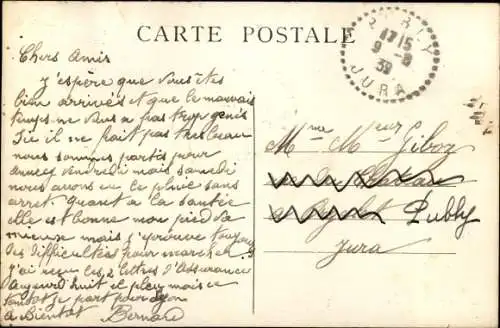 CARTE POSTALE
17 15
9 - 8
39
JURA
Chers Amis
J'espère que vous êtes
bien arrivés et que le mauvais
temps ne vous a pas trop gênés
Ici il ne fait pas très beau
nous sommes partis pour
Annecy vendredi mais samedi
nous avons eu la pluie sans
arret. Quant à la santée
elle est bonne mon pied va
mieux mais j'éprouve toujours
des difficultées pour marcher.
J'ai reçu les 2 lettres d'Assurances
Aujourd'huit il pleu mais ce
tantot je part pour
a Bientôt Bernard
Mme Meur Giboz
Publy
Jura